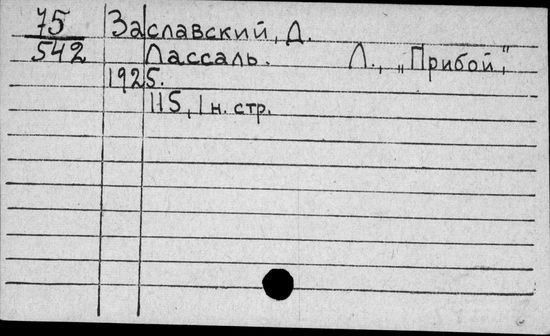 75 Заславский, Д.
542 Лассаль. Л., „Прибой,"
1925.
115, 1 н. стр.